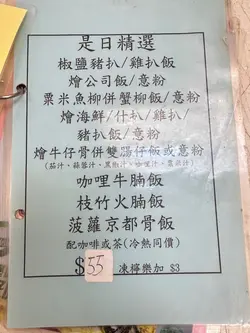 是日精選
椒鹽豬扒/雞扒飯
燴公司飯/意粉
粟米魚柳併蟹柳飯/意粉
燴海鮮/什扒/雞扒/
豬扒飯/意粉
燴牛仔骨併雙腸仔飯或意粉
(茄汁、蒜蓉汁、黑椒汁、咖哩汁、葱油汁)
咖哩牛腩飯
枝竹火腩飯
菠蘿京都骨飯
配咖啡或茶(冷熱同價)
$55 凍檸樂加 $3